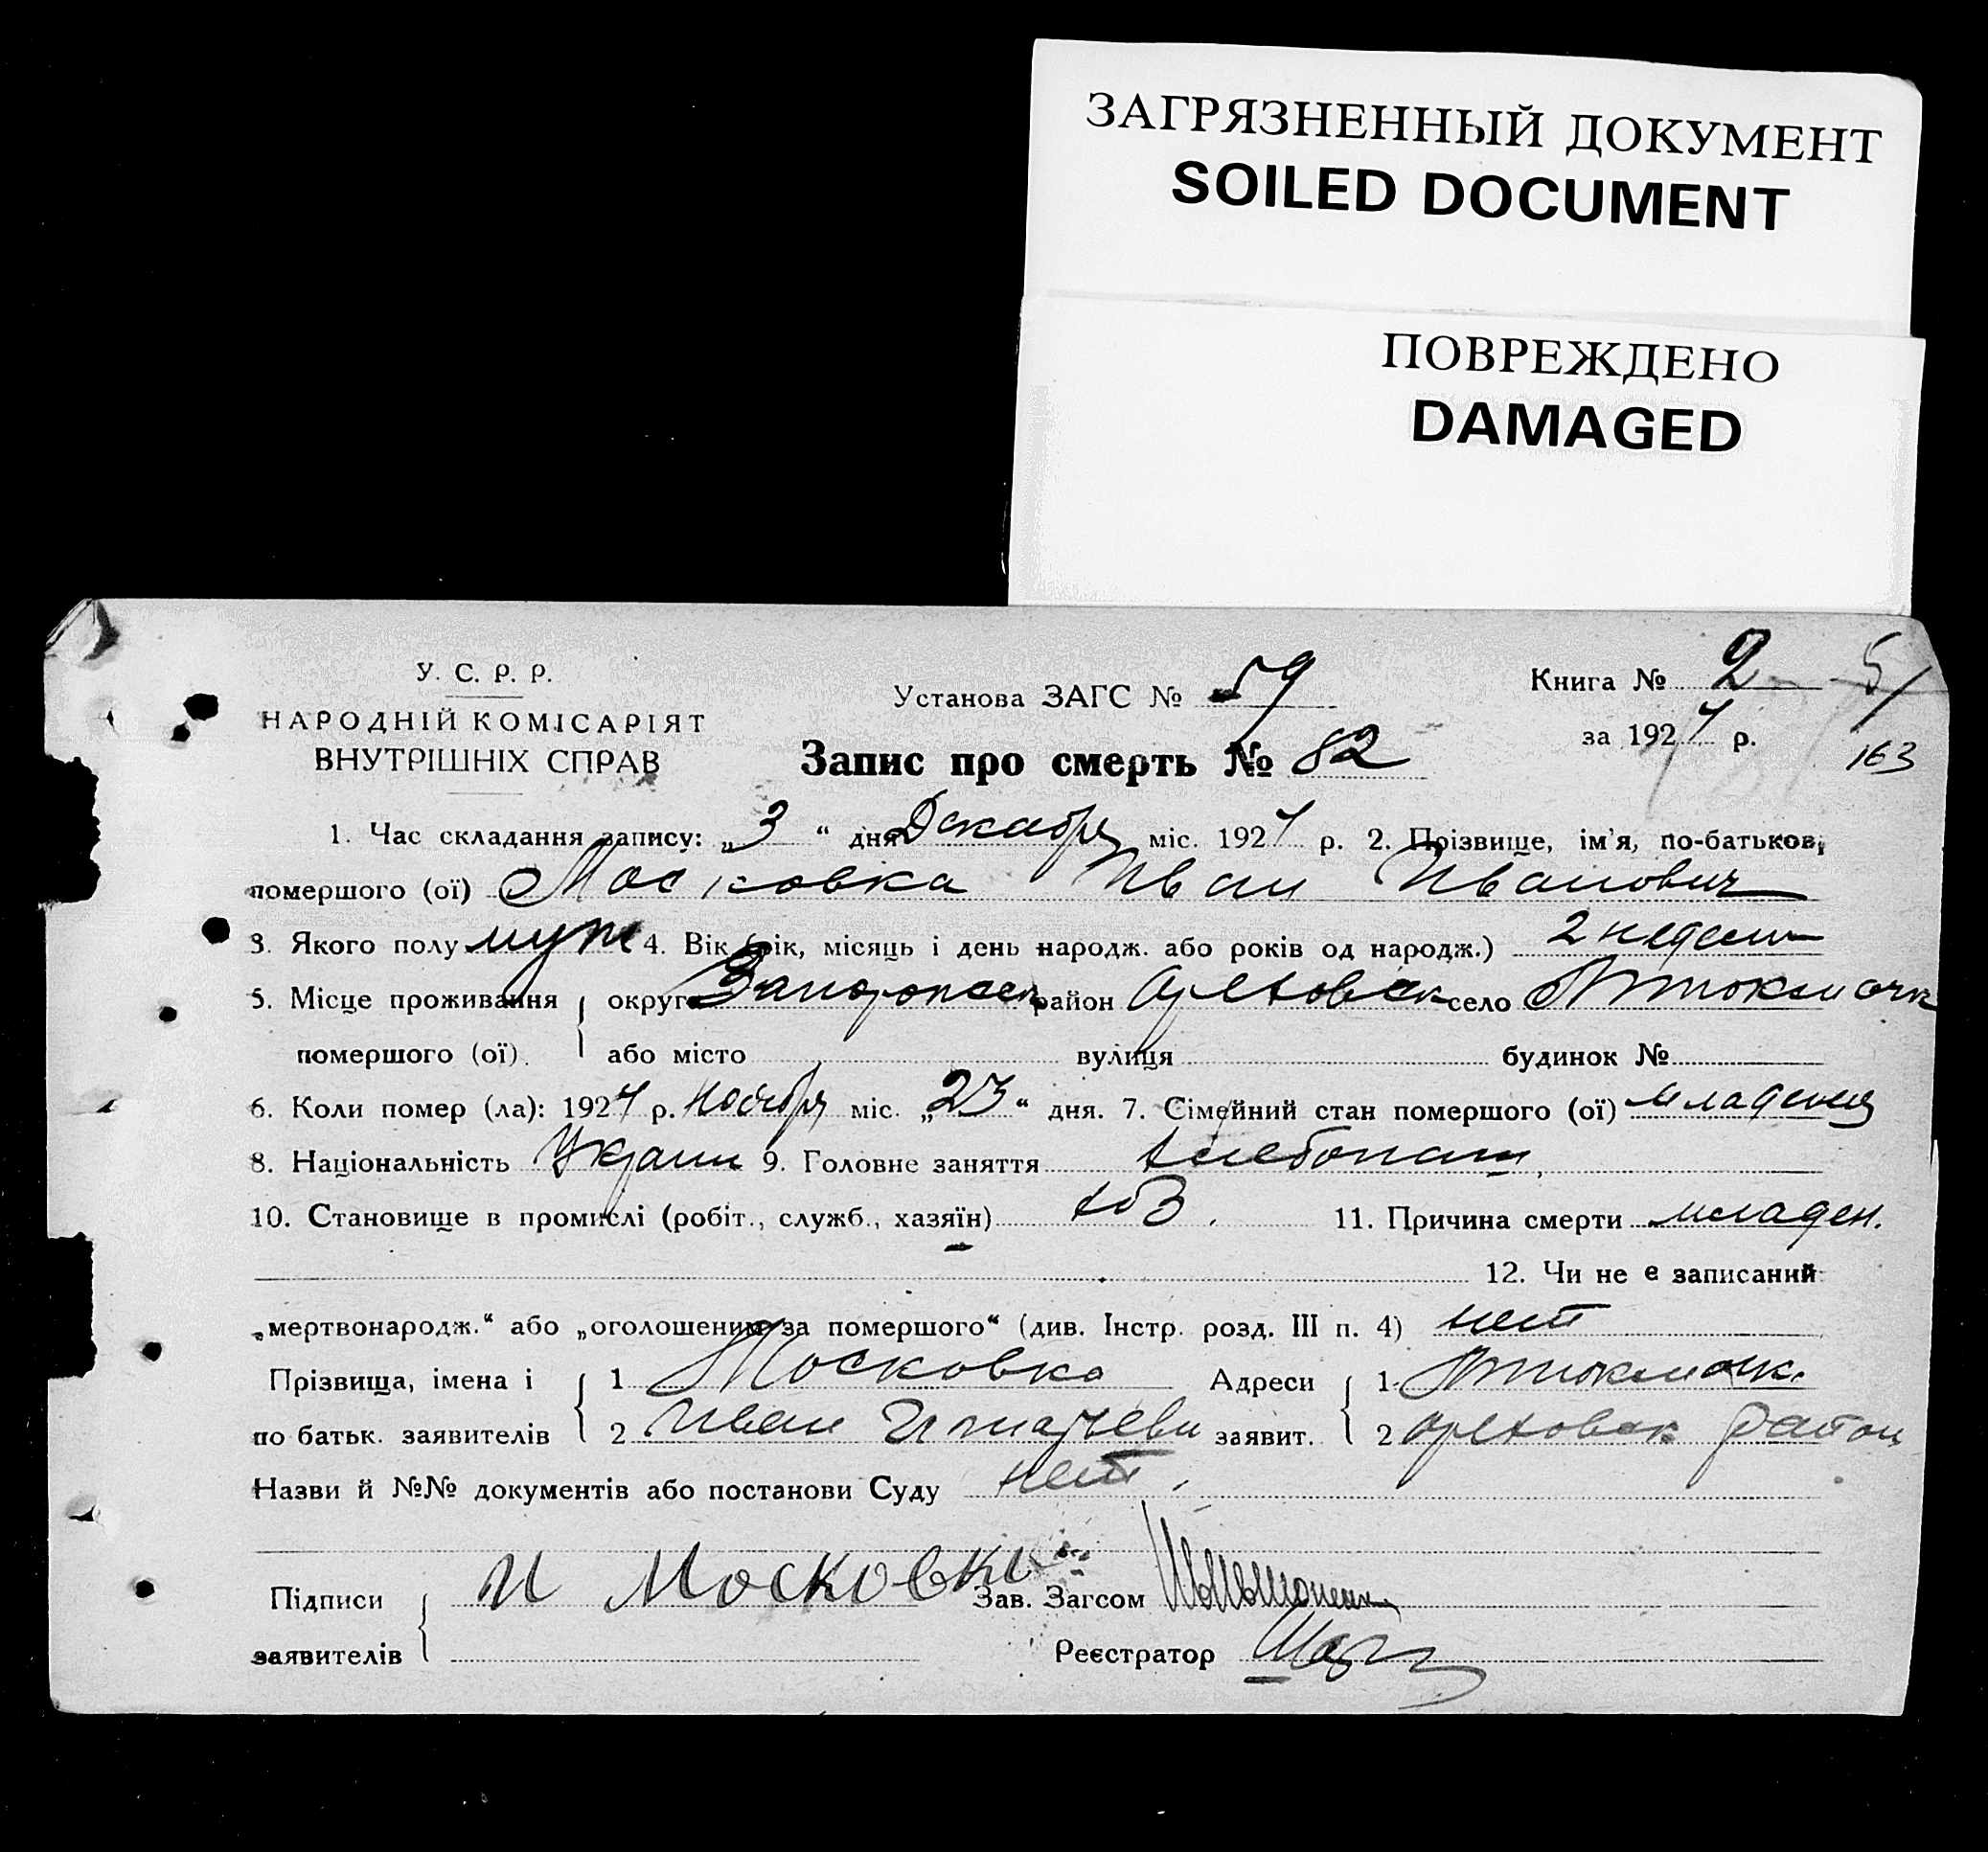 ЗАГРЯЗНЕННЫЙ ДОКУМЕНТ
SOILED DOCUMENT
ПОВРЕЖДЕНО
DAMAGED
У. С. Р. Р.
НАРОДНІЙ КОМІСАРІЯТ
ВНУТРІШНІХ СПРАВ
Установа ЗАГС № 59
Книга № 2
51
за 1927 р.
163
Запис про смерть № 82
1. Час складання запису: „3“ дня Декабря міс. 1927 р. 2. Прізвище, ім'я, по-батьков,
помершого (ої) Московка Иван Иванович
3. Якого полу муж 4. Вік (рік, місяць і день народж. або років од народж.) 2 недели
5. Місце проживання округа Запорожск район Ореховск село
помершого (ої). або місто вулиця будинок №
6. Коли помер (ла): 1927 р. ноября міс. „23“ дня. 7. Сімейний стан помершого (ої) младенец
8. Національність Украин 9. Головне заняття хлебопаш,
10. Становище в промислі (робіт., служб., хазяїн) хоз. 11. Причина смерти младен.
12. Чи не є записаний
„мертвонародж.“ або „оголошеним за помершого“ (див. Інстр. розд. III п. 4) нет
Прізвища, імена і 1 Московка Адреси 1
по батьк. заявителів 2 Иван заявит. 2 Ореховск район
Назви й №№ документів або постанови Суду нет
Підписи И Московка Зав. Загсом
заявителів Реєстратор